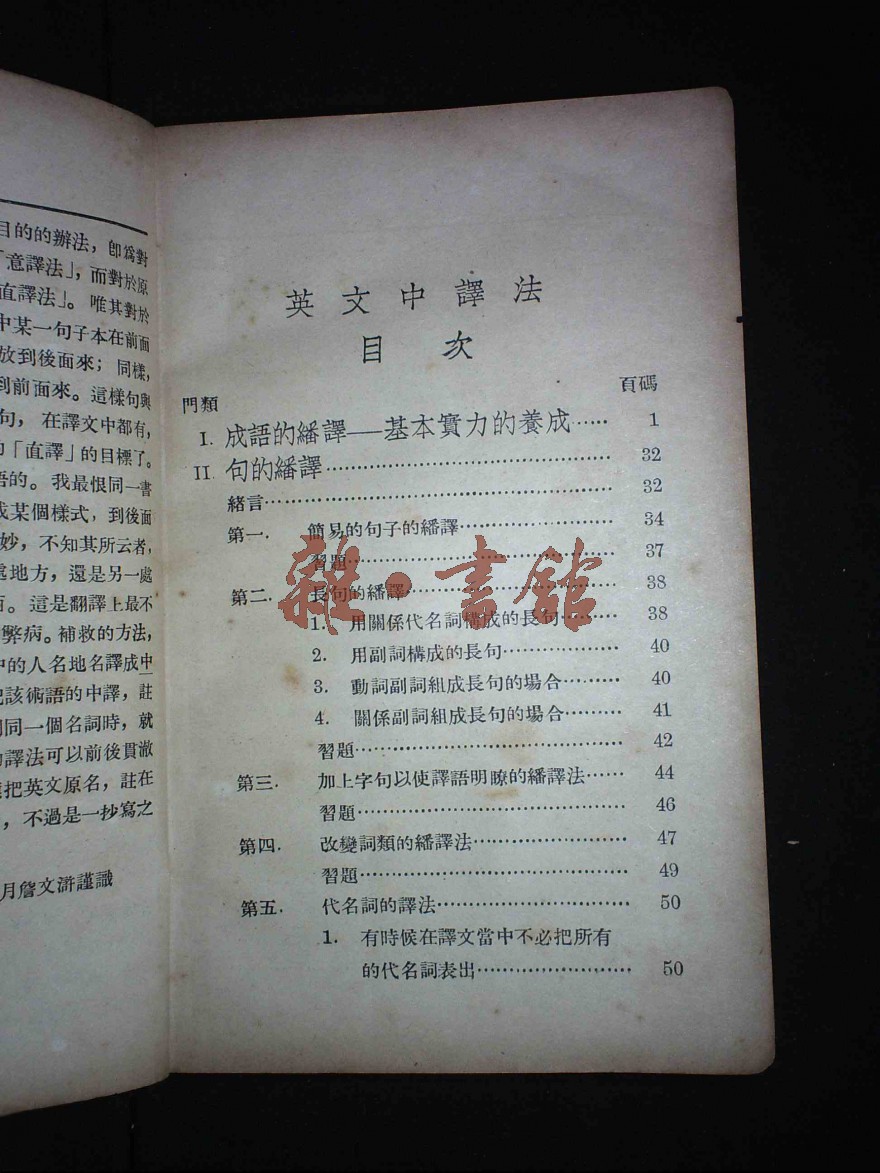 目的的辦法，卽爲對
「意譯法」，而對於原
直譯法」。唯其對於
中某一句子本在前面
放到後面來；同樣，
到前面來。這樣句與
句，在譯文中都有，
「直譯」的目標了。
語的。我最恨同一書
某個樣式，到後面
妙，不知其所云者，
處地方，還是另一處
。這是翻譯上最不
弊病。補救的方法，
中的人名地名譯成中
該術語的中譯，註
同一個名詞時，就
譯法可以前後貫澈
把英文原名，註在
，不過是一抄寫之
月詹文滸謹識
英文中譯法
目次
門類 頁碼
I. 成語的繙譯──基本實力的養成…… 1
II. 句的繙譯…… 32
緒言…… 32
第一. 簡易的句子的繙譯…… 34
習題…… 37
第二. 長句的繙譯…… 38
1. 用關係代名詞構成的長句…… 38
2. 用副詞構成的長句…… 40
3. 動詞副詞組成長句的場合…… 40
4. 關係副詞組成長句的場合…… 41
習題…… 42
第三. 加上字句以使譯語明瞭的繙譯法…… 44
習題…… 46
第四. 改變詞類的繙譯法…… 47
習題…… 49
第五. 代名詞的譯法…… 50
1. 有時候在譯文當中不必把所有
的代名詞表出…… 50
雜·書館